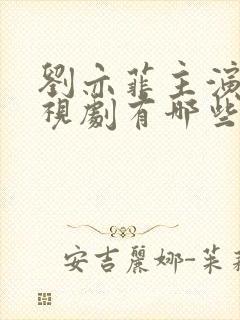 劉亦菲主演
視劇有哪些
安吉麗娜-茱莉